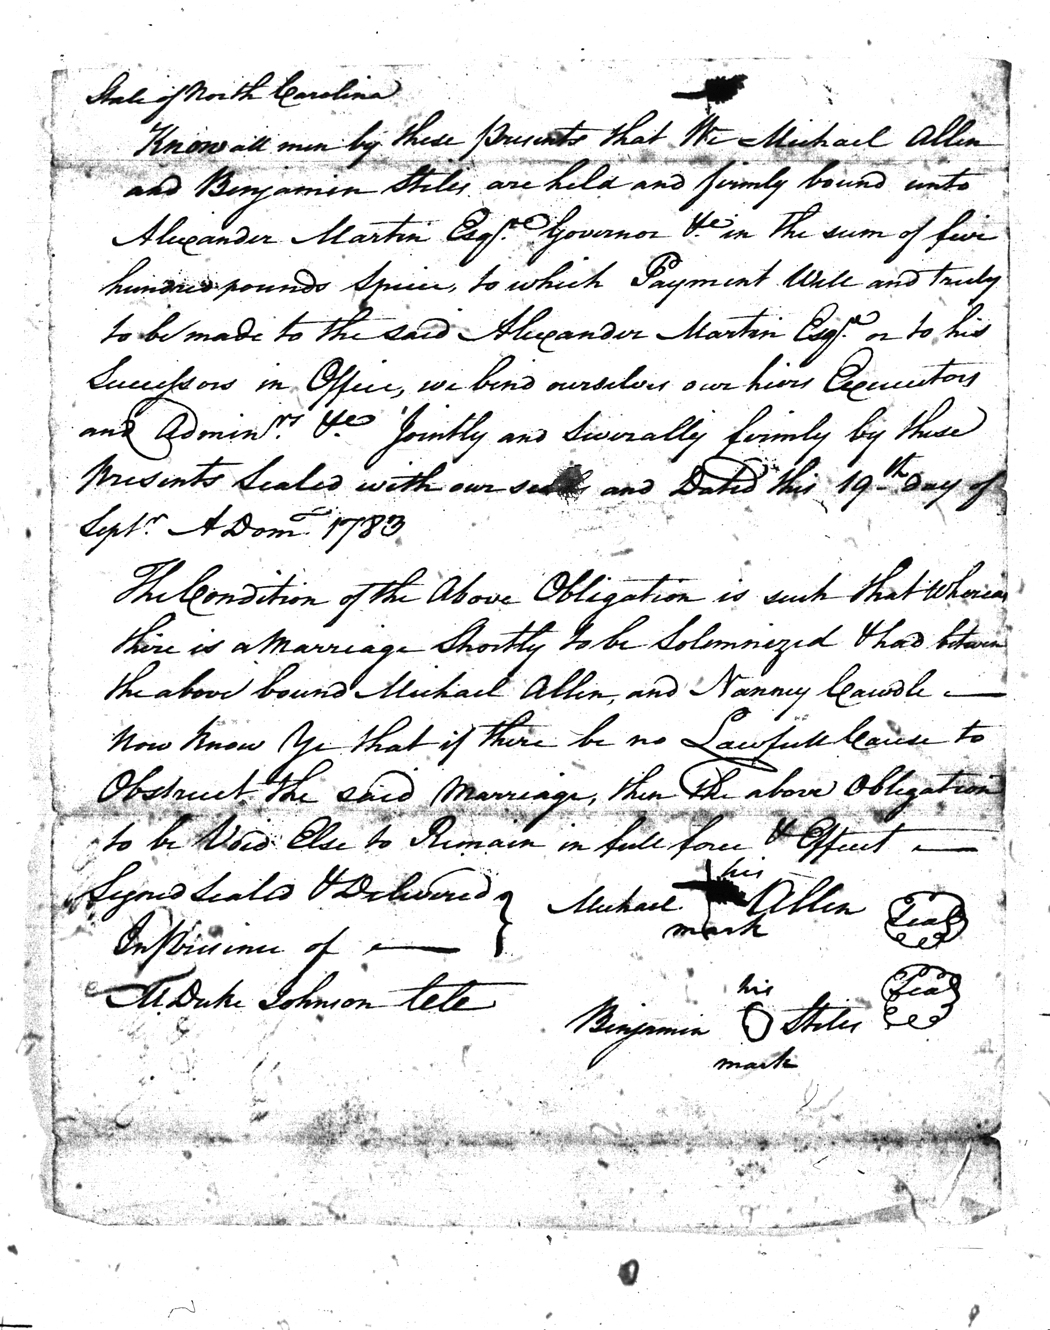 State of North Carolina
Know all men by these presents that We Michael Allen
and Benjamin Stiles are held and firmly bound unto
Alexander Martin Esqre Governor &c in the sum of five
hundred pounds Specie, to which Payment Well and truly
to be made to the said Alexander Martin Esqr or to his
Successors in Office, we bind ourselves our hiers Executors
and Adminrs &c Jointly and Severally firmly by these
Presents Sealed with our seals and Dated this 19th day of
Septr A Dom 1783
The Condition of the Above Obligation is such that Whereas
there is a Marriage Shortly to be Solemnized & had between
the above bound Michael Allen, and Nanney Cawdle
Now Know Ye that if there be no Lawfull Cause to
Obstruct the said Marriage, then the above Obligation
to be Void Else to Remain in full force & Effect
Signed Sealed & Delivered
In Presence of
his
Michael Allen Seal
mark
M. Duke Johnson
his
Benjamin O Stiles Seal
mark